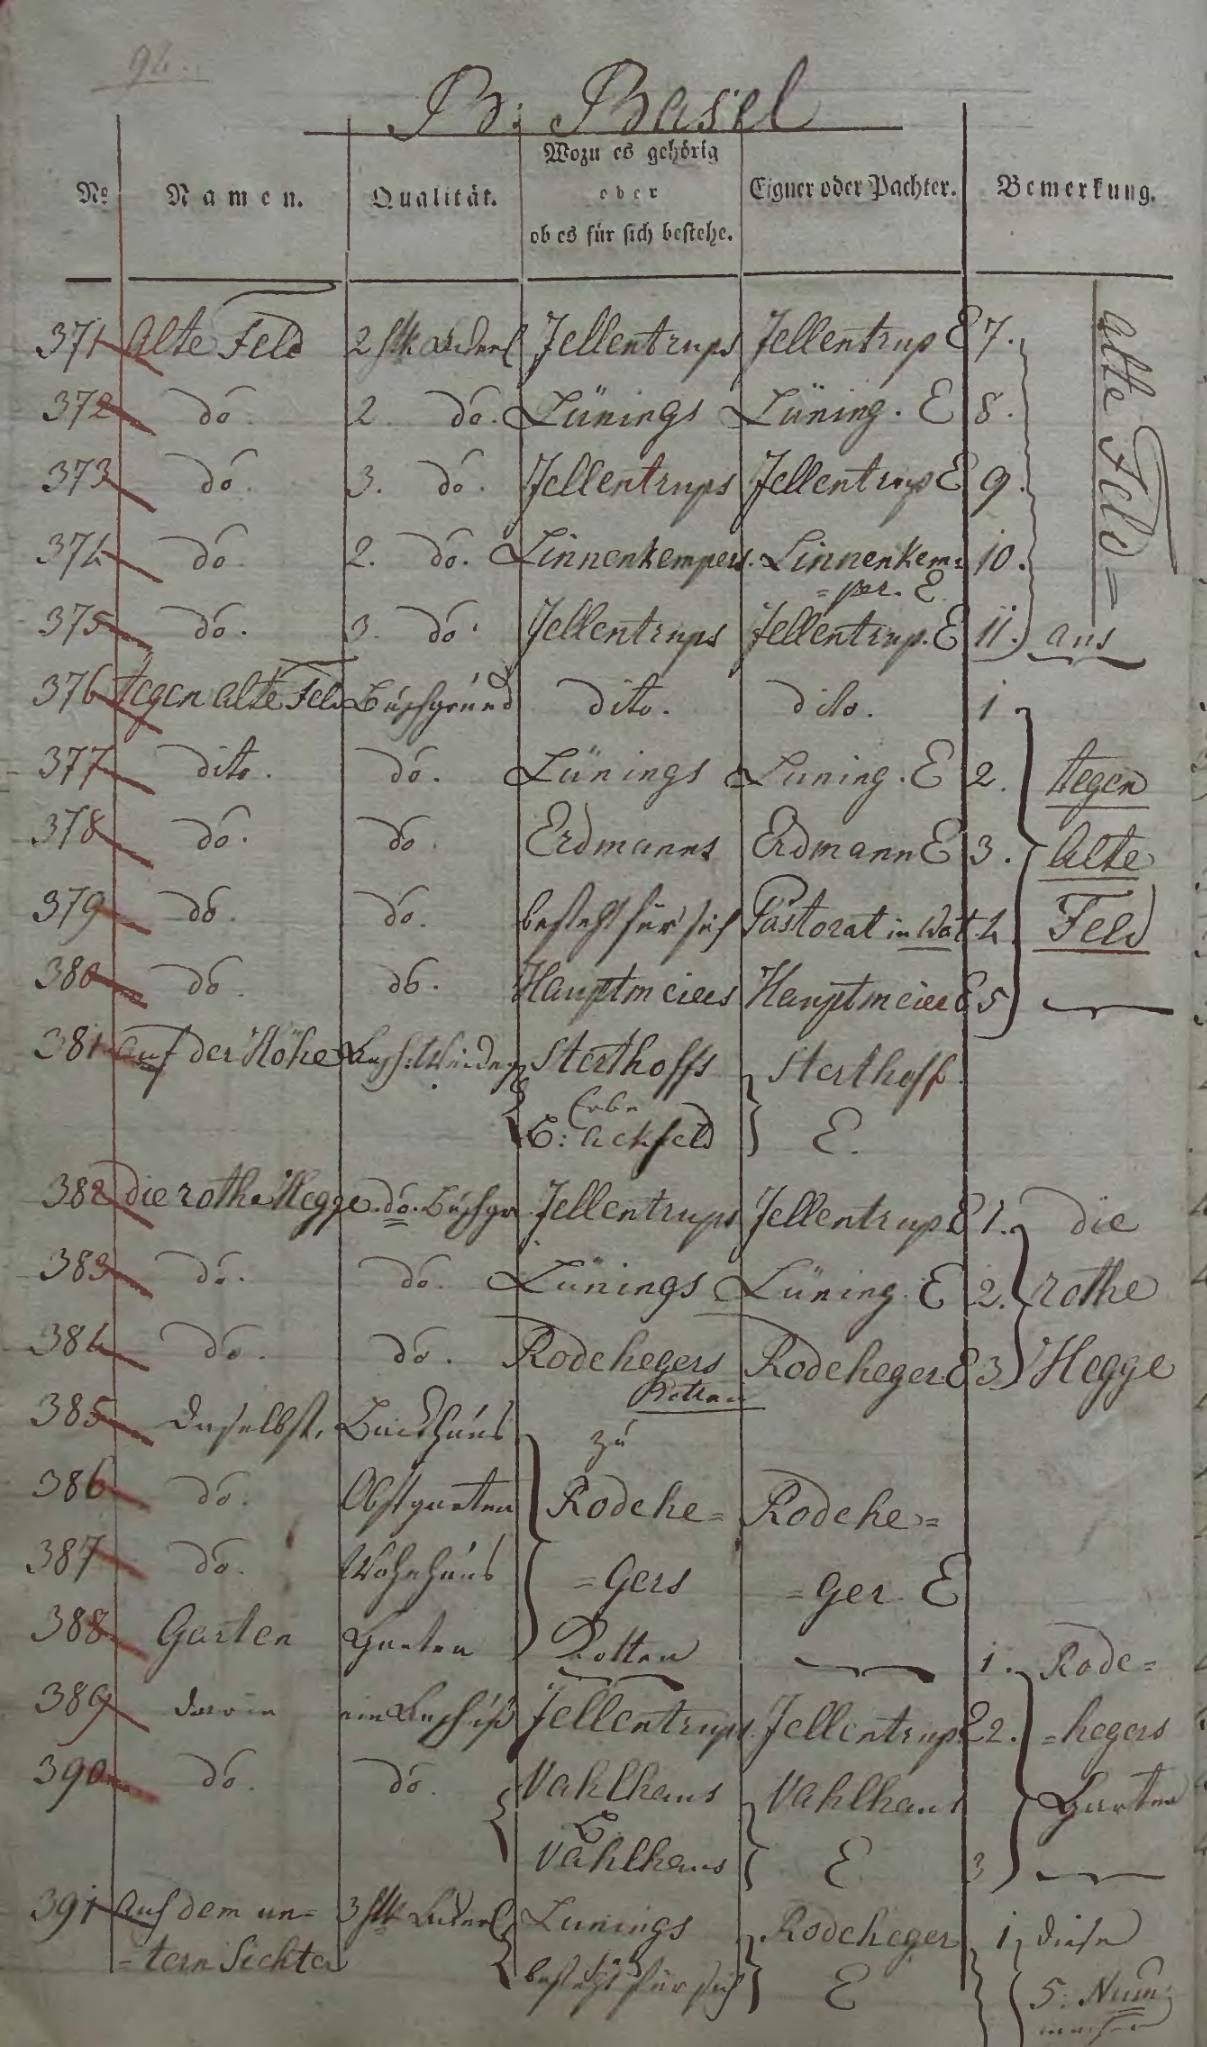 94.
B: Basel
No Namen. Qualität. Wozu es gehörig oder ob es für sich bestehe. Eigner oder Pachter. Bemerkung.
371 Alte Feld 2 Stk Jellentrups Jellentrup E 7.
alte Feld=
372 do. 2. do. Lünings Lüning. E 8.
373 do. 3. do. Jellentrups Jellentrup E 9.
374 do. 2. do. Linnenkempers. Linnenkem= 10.
=per. E.
375 do. 3. do. Jellentrups Jellentrup. E 11. aus
376 tegen alte Feld Buschgrund dito. dito. 1
377 dito. do. Lünings Luning. E 2. tegen
378 do. do. Erdmanns Erdmann E 3. Alte
379 do. do. besteht für sich Pastorat in Wat 4 Feld
380 do. do. Hauptmeiers Hauptmeier E 5
381 auf der Höhe Sterthoffs Sterthoff
Erbe
B: Ackfeld E.
382 die rothe Hegge. do. Buschgr Jellentrups Jellentrup E 1. die
383 do. do. Lünings Lüning. E 2. rothe
384 do. do. Rodehegers Rodeheger E 3 Hegge
Kotten
385 daselbst. Backhaus zu
386 do. Obstgarten Rodehe= Rodehe=
387 do. Wohnhaus =gers =ger. E
388 Garten Garten Kotten 1. Rode=
389 darin ein Jellentrups. Jellentrup. E 2. =hegers
390 do. do. Vahlhaus Vahlhaus Garten
B.
Vahlhaus E 3
391 auf dem un= 3 Stk Lunings Rodeheger 1 diese
=tern Sichter besteht für sich E 5: Num=